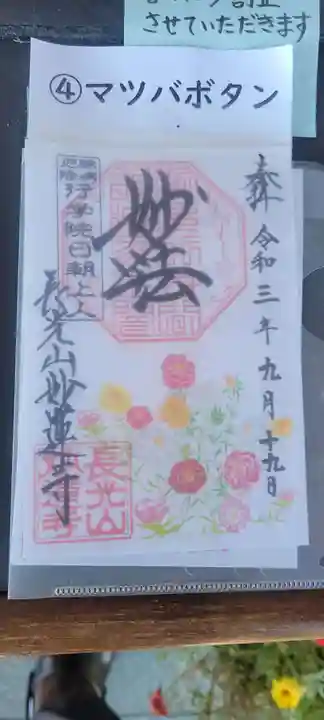 させていただきます
④マツバボタン
奉拝 令和三年九月十九日
妙法
行学院日朝上人
長光山妙蓮寺
長光山
妙蓮寺